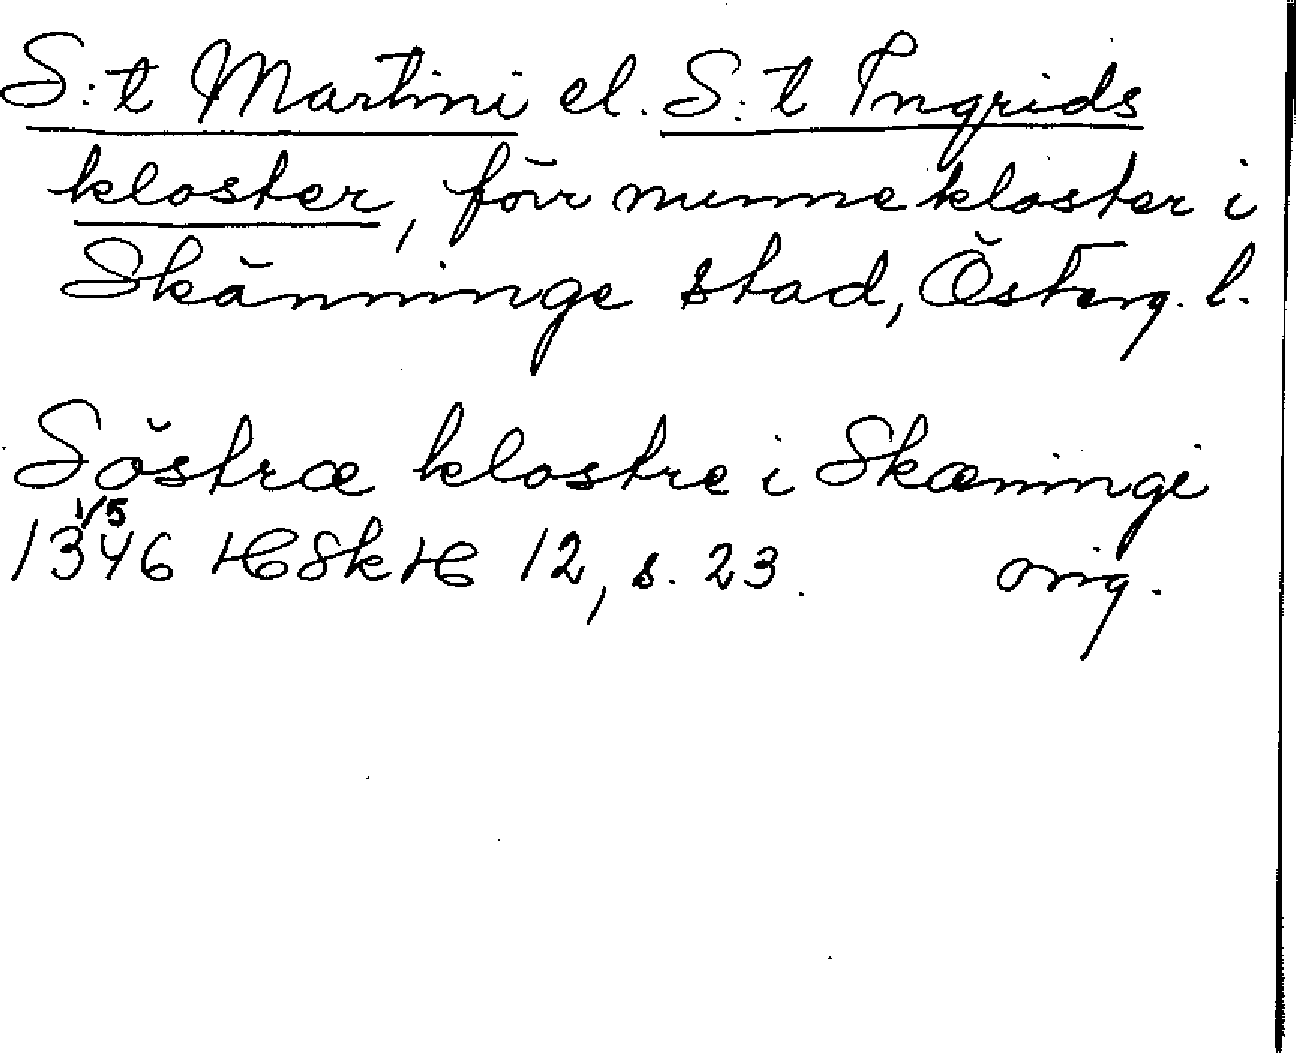 S:t Martini el. S:t Ingrids
kloster, förr nunnekloster i
Skänninge stad, Österg. l.
Söstræ klostre i Skæninge
1346 1/5 HSkH 12, s. 23. orig.